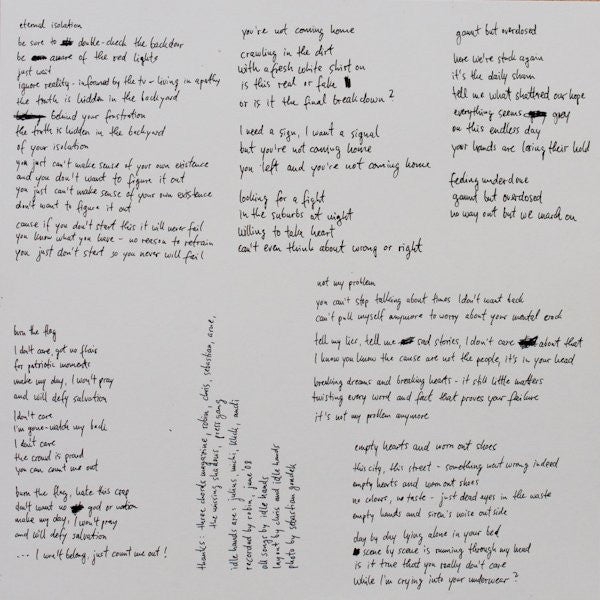 eternal isolation
be sure to double-check the backdoor
be aware of the red lights
just wait
ignore reality - informed by the tv - living in apathy
the truth is hidden in the backyard
behind your frustration
the truth is hidden in the backyard
of your isolation
you just can't make sense of your own existence
and you don't want to figure it out
you just can't make sense of your own existence
don't want to figure it out
cause if you don't start this it will never fail
you know what you have - no reason to refrain
you just don't start so you never will fail
you're not coming home
crawling in the dirt
with a fresh white shirt on
is this real or fake
or is it the final breakdown?
I need a sign, I want a signal
but you're not coming home
you left and you're not coming home
looking for a fight
in the suburbs at night
willing to take heart
can't even think about wrong or right
gaunt but overdosed
here we're stuck again
it's the daily sham
tell me what shattered our hope
everything seems grey
on this endless day
your hands are losing their hold
feeling underdone
gaunt but overdosed
no way out but we march on
burn the flag
I don't care, got no flair
for patriotic moments
make my day, I won't pray
and will defy salvation
I don't care
I'm gone - watch my back
I don't care
the crowd is proud
you can count me out
burn the flag, hate this crap
don't want no god or nation
make my day, I won't pray
and will defy salvation
... I won't belong, just count me out!
thanks: three chords magazine, robin, chris, sebastian, arne,
the missing shadows, press gang
idle hands are: julius, michi, andi
recorded by robin, june '08
all songs by idle hands
layout by chris and idle hands
photo by sebastian
not my problem
you can't stop talking about times I don't want back
can't pull myself anymore to worry about your mental crack
tell my lies, tell me sad stories, I don't care about that
I know you know the cause are not the people, it's in your head
breaking dreams and breaking hearts - it still little matters
twisting every word and fact that proves your failure
it's not my problem anymore
empty hearts and worn out shoes
this city, this street - something went wrong indeed
empty hearts and worn out shoes
no colours, no taste - just dead eyes in the waste
empty hands and siren's noise outside
day by day lying alone in your bed
scene by scene is running through my head
is it true that you really don't care
while I'm crying into your underwear?